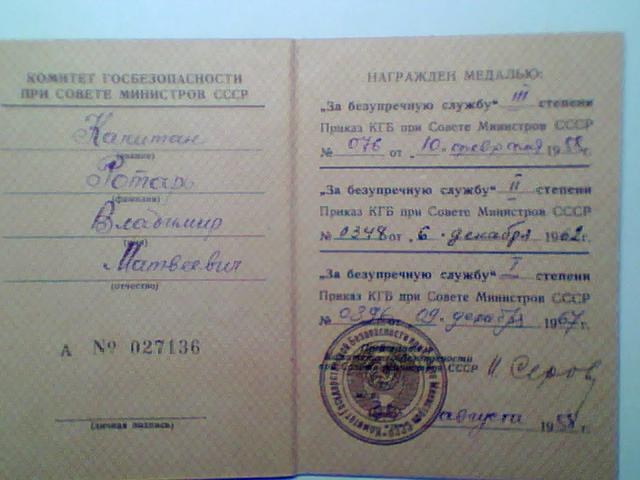 КОМИТЕТ ГОСБЕЗОПАСНОСТИ
ПРИ СОВЕТЕ МИНИСТРОВ СССР
Капитан
(звание)
Ротарь
(фамилия)
Владимир
(имя)
Матвеевич
(отчество)
А № 027136
(личная подпись)
НАГРАЖДЕН МЕДАЛЬЮ:
„За безупречную службу“ III степени
Приказ КГБ при Совете Министров СССР
№ 076 от „10„ февраля 1958г.
„За безупречную службу“ II степени
Приказ КГБ при Совете Министров СССР
№ 0348 от „6„ декабря 1962г.
„За безупречную службу“ I степени
Приказ КГБ при Совете Министров СССР
№ 0396 от 09„ декабря 1967г.
Председатель
Комитета госбезопасности
при Совете министров СССР И. Серов
августа 1958г.